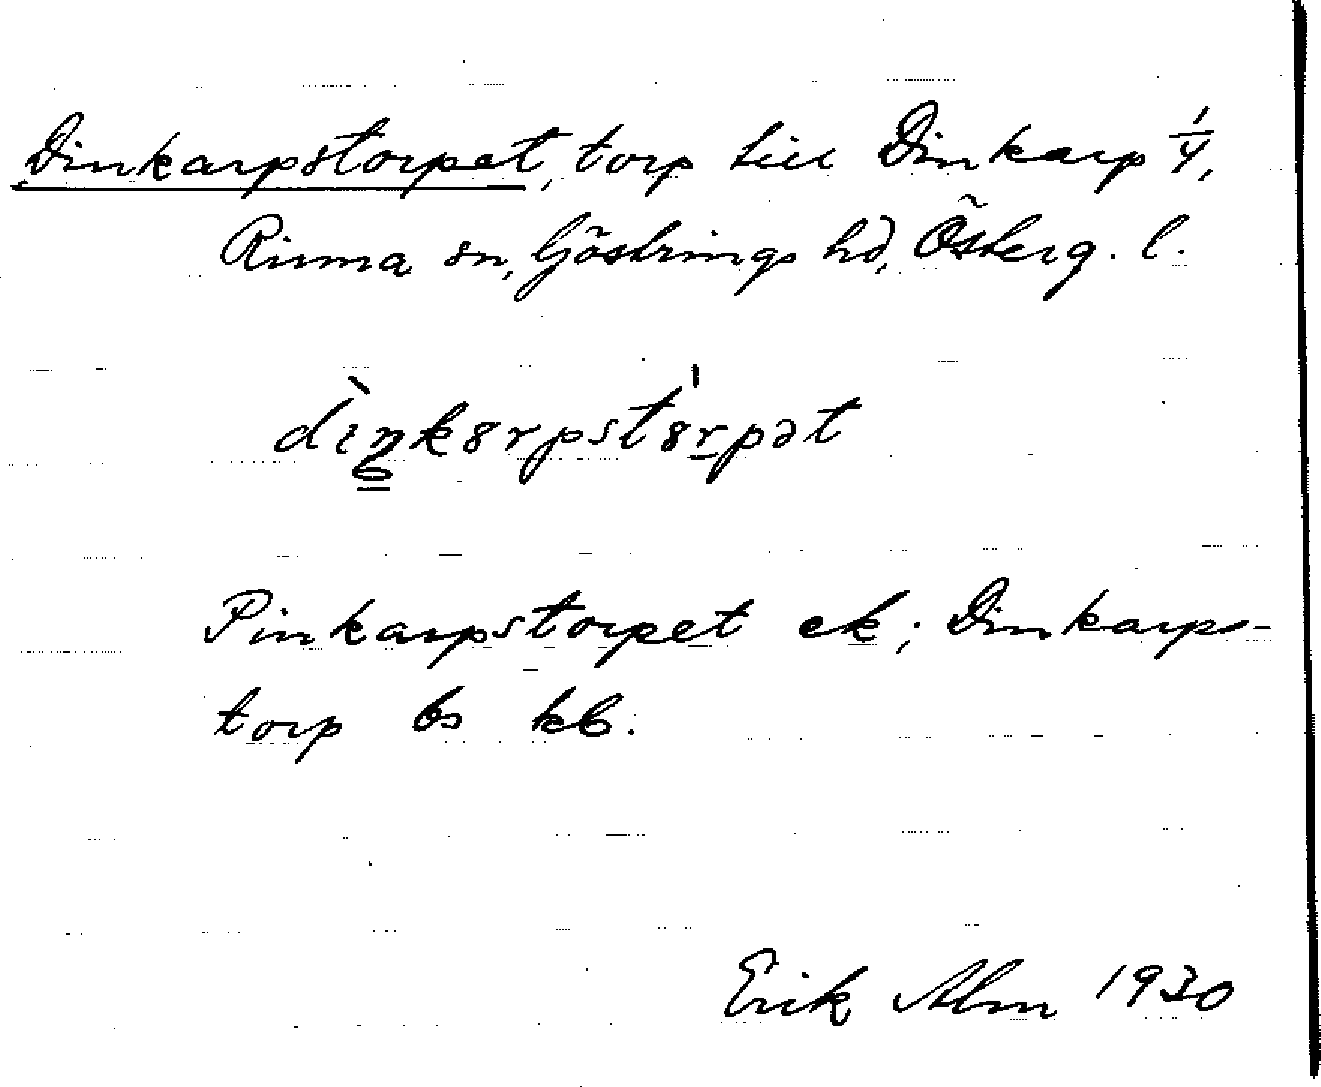 Dinkarpstorpet, torp till Dinkarp 1/4,
Rinna sn, Göstrings hd, Österg. l.
dìŋkȣrpstˈȣrpət
Pinkarpstorpet ek; Dinkarps-
torp bs kb.
Erik Alm 1930